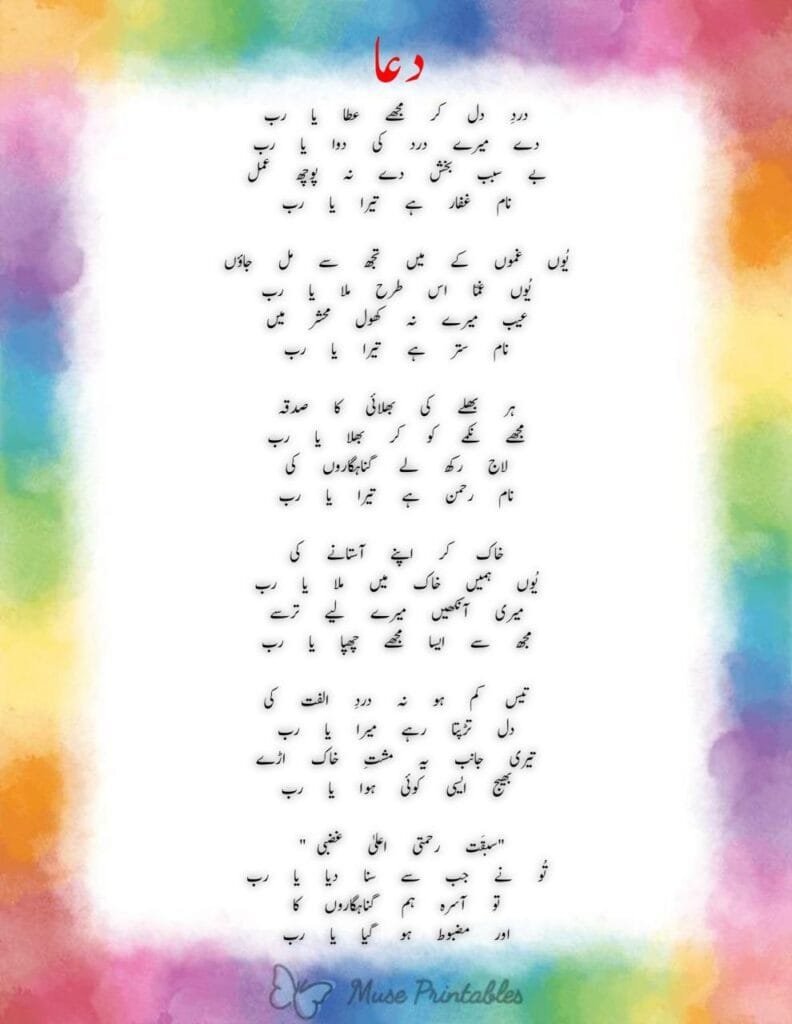 دعا
دردِ دل کر مجھے عطا یا رب
دے میرے درد کی دوا یا رب
بے سبب بخش دے نہ پوچھ عمل
نام غفار ہے تیرا یا رب
یُوں غموں کے میں تجھ سے مل جاؤں
یُوں گما اس طرح ملا یا رب
عیب میرے نہ کھول محشر میں
نام ستر ہے تیرا یا رب
ہر بھلے کی بھلائی کا صدقہ
مجھے نکمے کو کر بھلا یا رب
لاج رکھ لے گناہگاروں کی
نام رحمن ہے تیرا یا رب
خاک کر اپنے آستانے کی
یُوں ہمیں خاک میں ملا یا رب
میری آنکھیں میرے لیے ترسے
مجھ سے ایسا مجھے چھپا یا رب
تیس کم ہو نہ دردِ الفت کی
دل تڑپتا رہے میرا یا رب
تیری جانب یہ مشتِ خاک اڑے
بھیج ایسی کوئی ہوا یا رب
"سبقَت رحمتی اعلیٰ غضبی "
تُو نے جب سے سنا دیا یا رب
تو آسرہ ہم گناہگاروں کا
اور مضبوط ہو گیا یا رب
Muse Printables